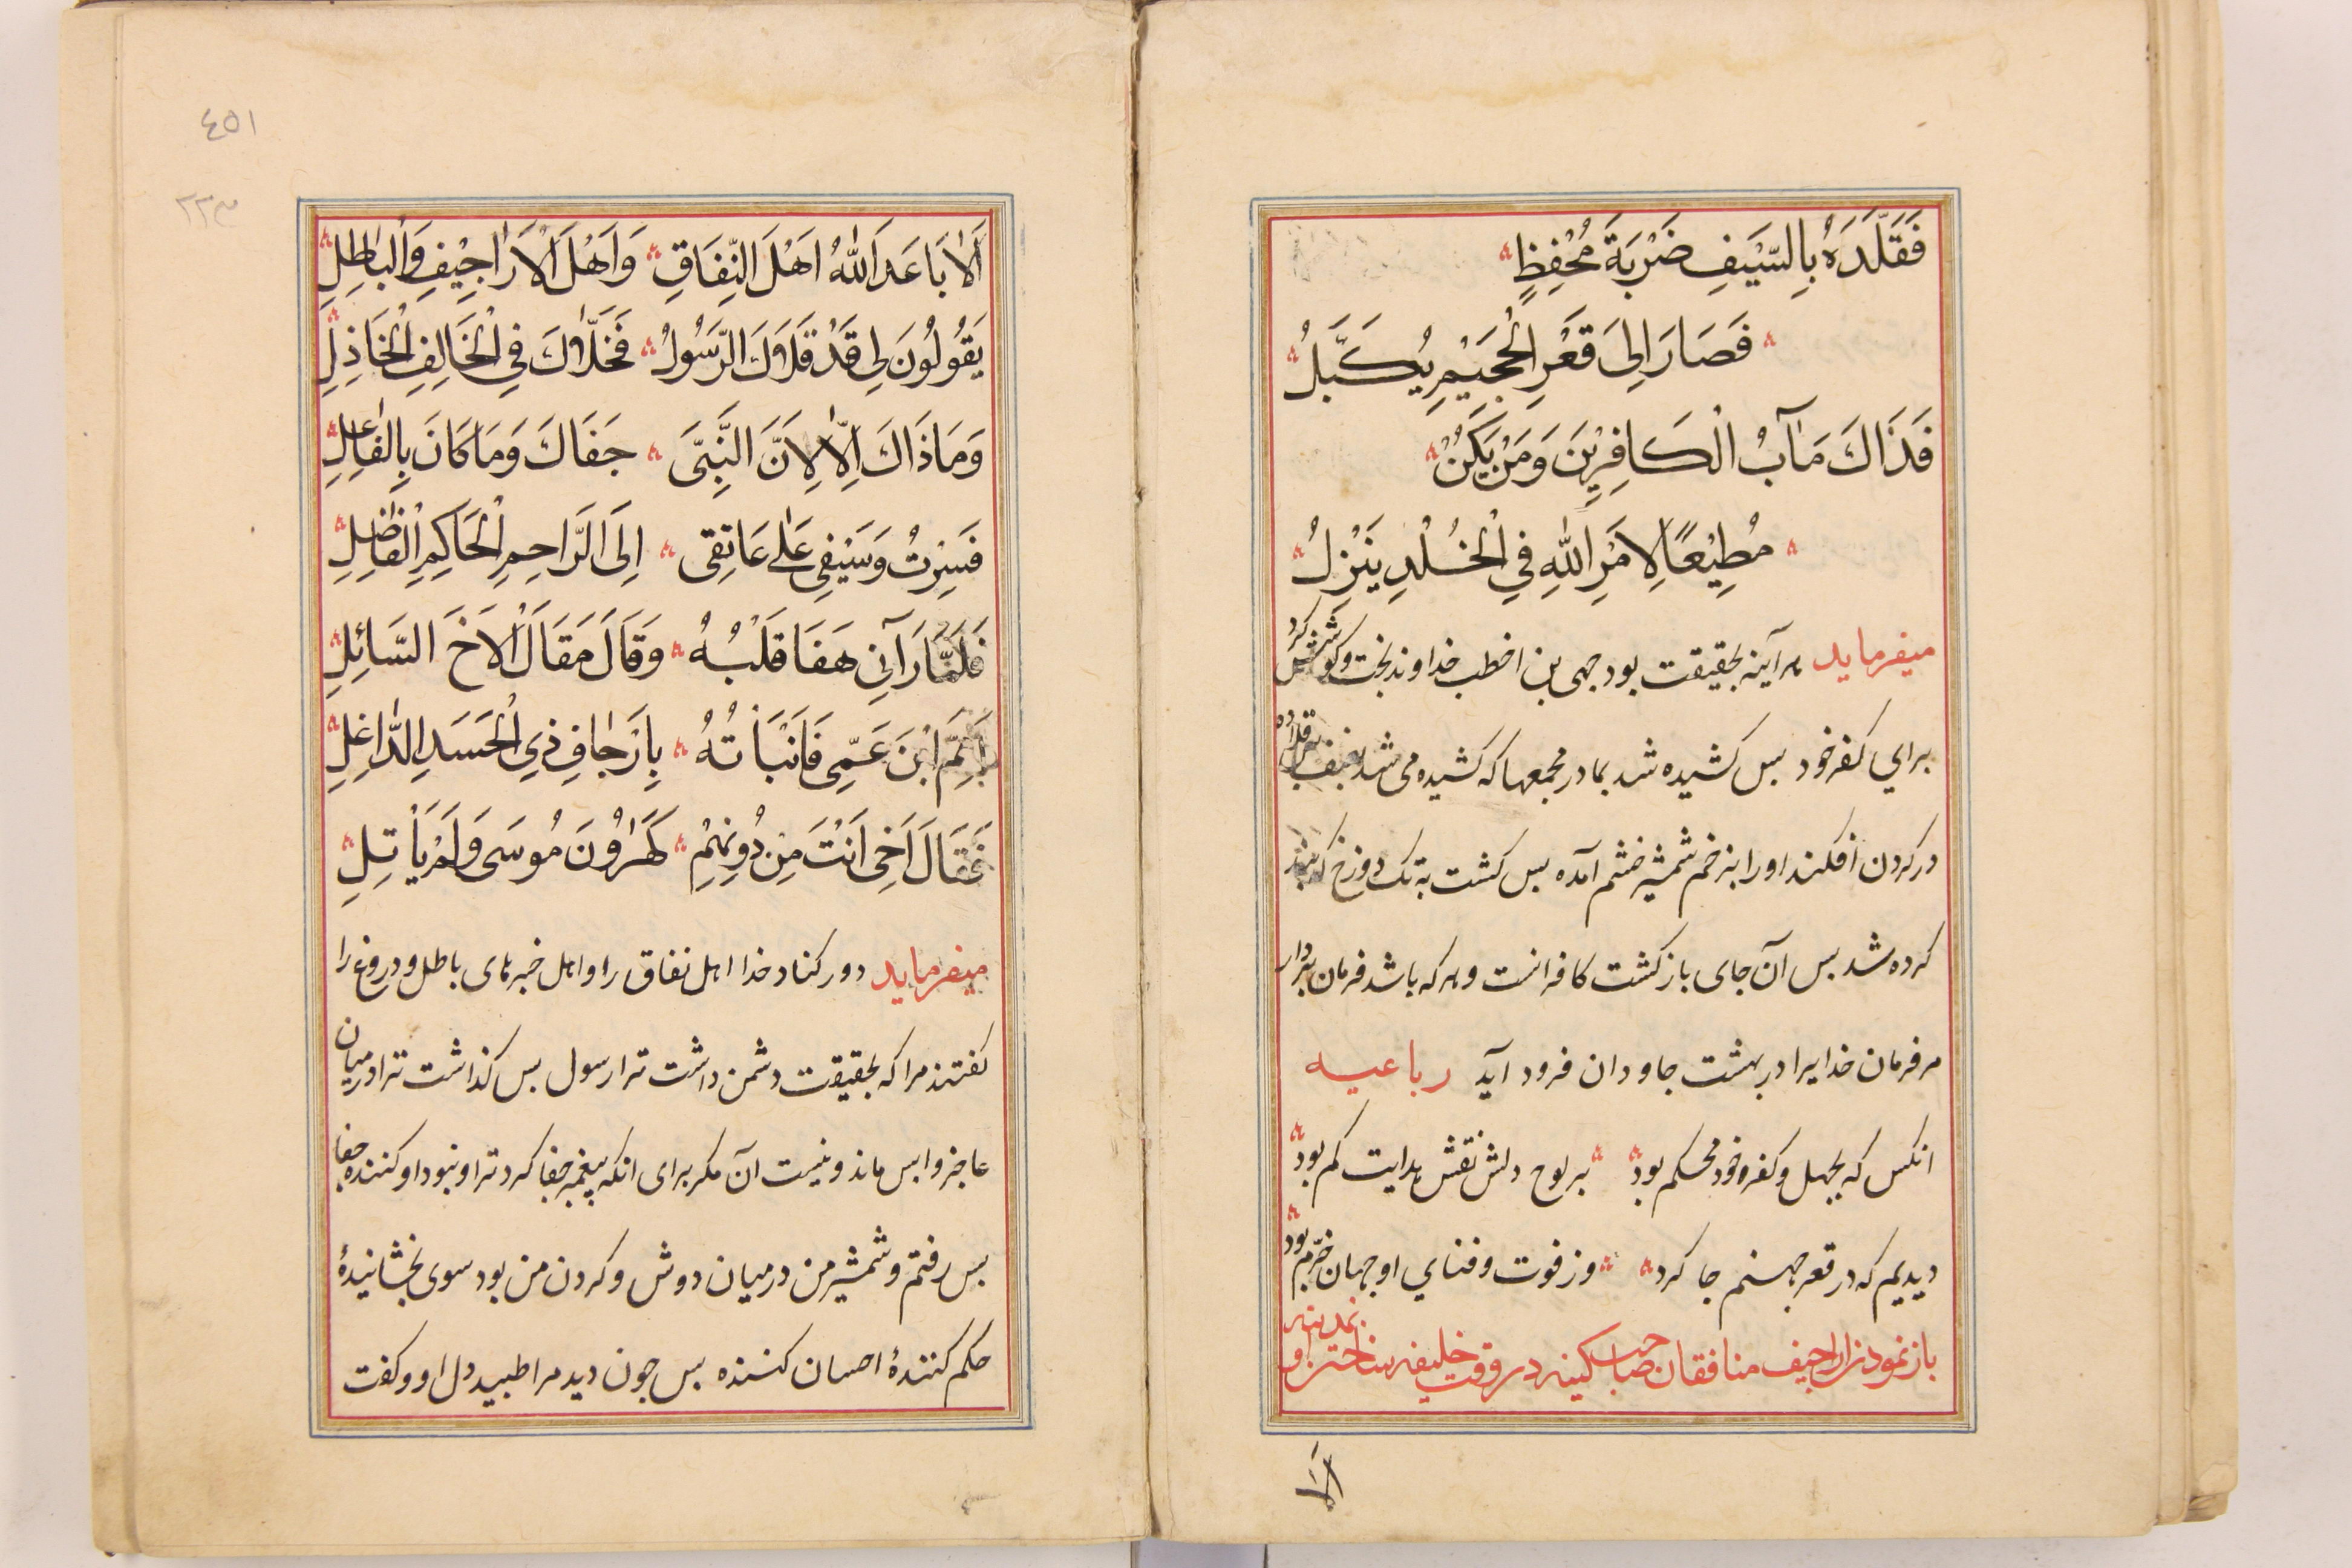 فَقَلَّدَهُ بِالسَّيْفِ ضَرْبَةَ مُحْفِظٍ
فَصَارَ اِلىَ قَعْرِ الْجَحِيْمِ يُكَبَّلُ
فَذَاكَ مَاٰبُ الْكَافِرِيْنَ وَمَنْ يَكُنْ
مُطِيْعًا لِاَمْرِ اللّٰهِ فِي الْخُلْدِ يَنْزِلُ
میفرماید هر آینه بحقیقت بود جهی بن اخطب خداوند بخت و کوشش کرد
برای کفر خود بس کشیده شد بما در مجمعها که کشیده می شد بعنف
در کردن افکند او را بزخم شمشیر خشم آمده بس کشت به تک دوزخ که بند
کرده شد بس آن جای بازکشت کافرانست و هر که باشد فرمان بردار
مر فرمان خدایرا در بهشت جاودان فرود آید رباعیه
انکس که بجهل و کفره خود محکم بود بر لوح دلش نقش هدایت کم بود
دیدیم که در قعر جهنم جا کرد وز فوت و فنای او جهان خرّم بود
باز نمودن اراجیف منافقان صاحب کینه در وقت خلیفه ساختن او بمدینه
اَلاٰ
٤٥١
٢٢٣
اَلاٰ بَاعَدَ اللّٰهُ اَهْلَ النِّفَاقِ وَاَهْلَ الْاَرَاجِيْفِ وَالْبَاطِلِ
يَقُوْلُوْنَ لِى قَدْ قَلَاكَ الرَّسُوْلُ فَخَلَّاكَ فِى الْخَالِفِ الْخَاذِلِ
وَمَا ذَاكَ اِلَّا لِاَنَّ النَّبِىَّ جَفَاكَ وَمَا كَانَ بِالْفَاعِلِ
فَسِرْتُ وَسَيْفِى عَلٰى عَاتِقِى اِلَى الرَّاحِمِ الْحَاكِمِ الْفَاضِلِ
فَلَمَّا رَاٰنِى هَفَا قَلْبُهُ وَقَالَ مَقَالَ الْاَخِ السَّائِلِ
اَمِمَّ ابْنَ عَمِّى فَاَنْبَأْتُهُ بِاِرْجَافِ ذِى الْحَسَدِ الدَّاغِلِ
فَقَالَ اَخِى اَنْتَ مِنْ دُوْنِهِمْ كَهَارُوْنَ مُوسَى وَلَمْ يَأْتِلِ
میفرماید دور کناد خدا اهل نفاق را و اهل خبرهای باطل و دروغ را
کفتند مرا که بحقیقت دشمن داشت ترا رسول بس کذاشت ترا در میان
عاجز و ابس ماند و نیست آن مکر برای انکه پیغمبر جفا کرد ترا و نبود او کننده جفا
بس رفتم و شمشیر من در میان دوش و کردن من بود سوی بخشانیدهٔ
حکم کنندهٔ احسان کننده بس جون دید مرا طبید دل او و کفت